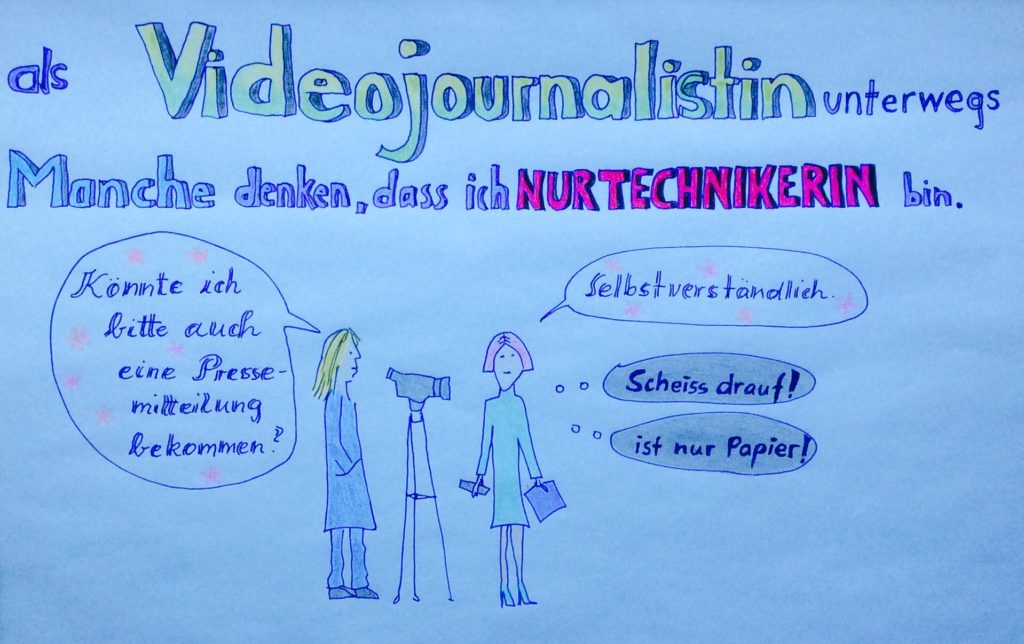 als Videojournalistin unterwegs
Manche denken, dass ich NUR TECHNIKERIN bin.
Könnte ich
bitte auch
eine Presse-
mitteilung
bekommen?
Selbstverständlich.
Scheiss drauf!
ist nur Papier!